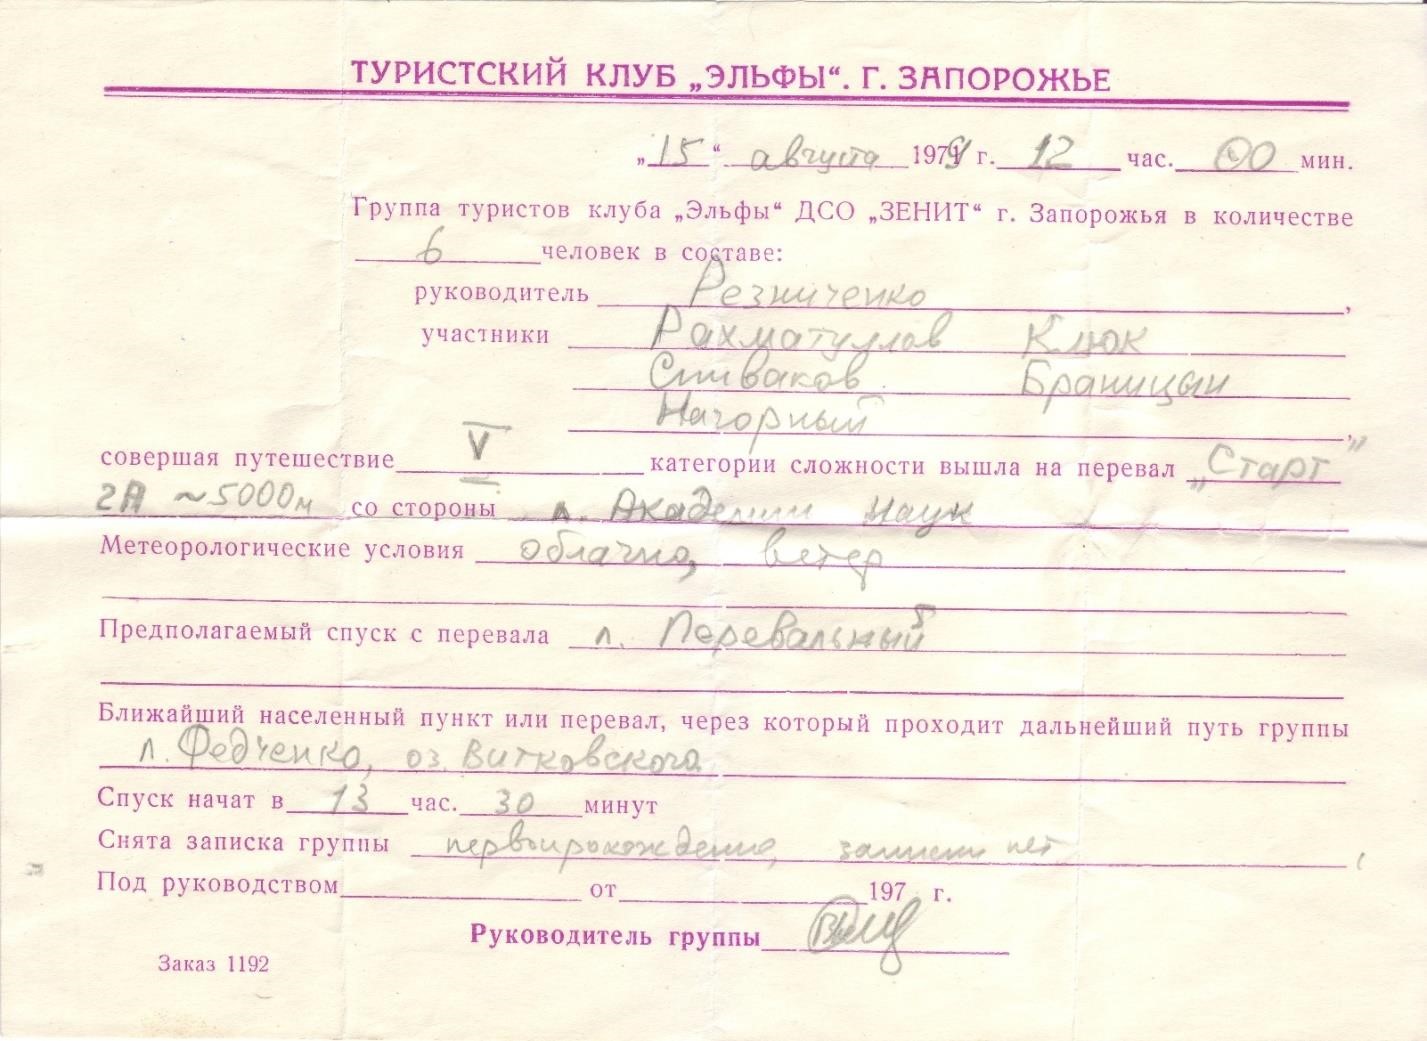 ТУРИСТСКИЙ КЛУБ „ЭЛЬФЫ“. Г. ЗАПОРОЖЬЕ
„15“ августа 1979 г. 12 час. 00 мин.
Группа туристов клуба „Эльфы“ ДСО „ЗЕНИТ“ г. Запорожья в количестве
6 человек в составе:
руководитель Резниченко,
участники Рахматуллов Клюк
Спиваков Браницын
Нагорный,
совершая путешествие V категории сложности вышла на перевал „Старт”
2А ~5000м со стороны л. Академии Наук
Метеорологические условия облачно, ветер
Предполагаемый спуск с перевала л. Перевальный
Ближайший населенный пункт или перевал, через который проходит дальнейший путь группы
л. Федченко, оз. Витковского
Спуск начат в 13 час. 30 минут
Снята записка группы первопрохождение, записки нет
Под руководством от 197 г.
Руководитель группы
Заказ 1192